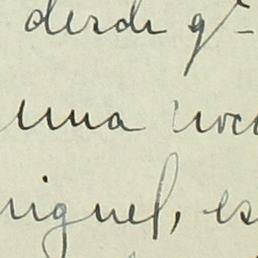 desde q^e
una noc
iguel, es